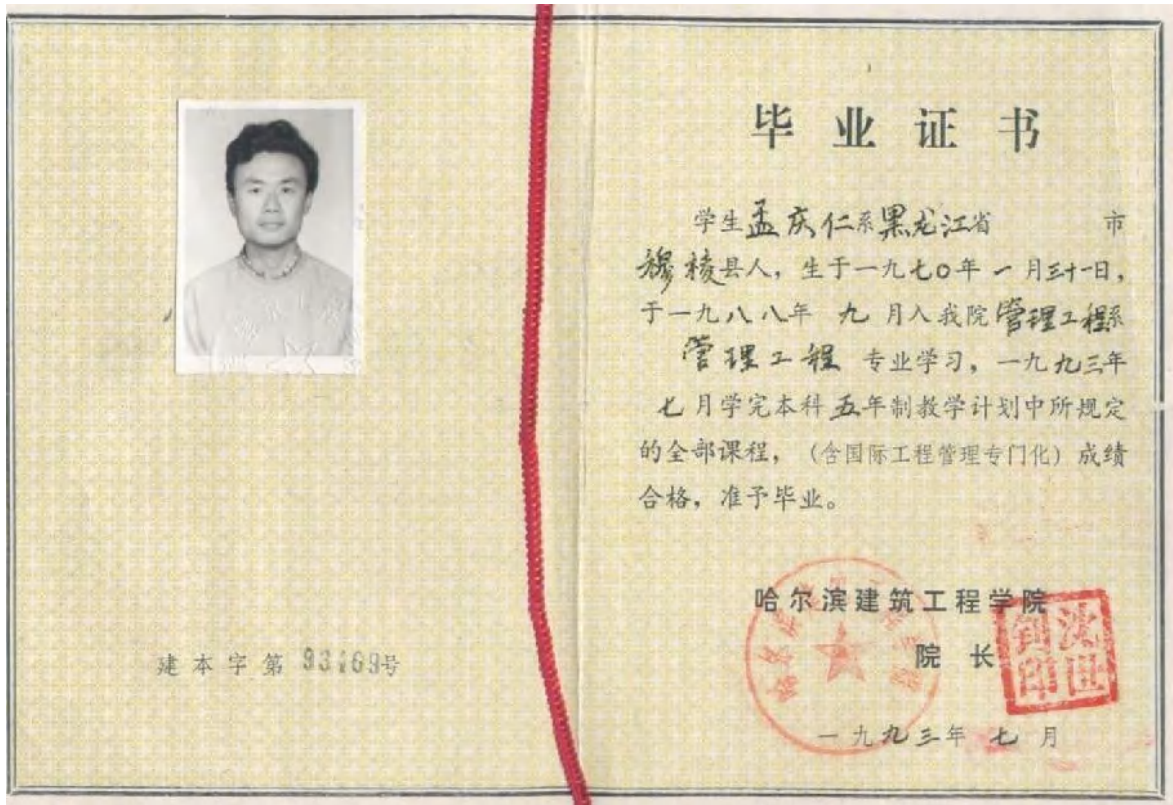 毕业证书
学生孟庆仁系黑龙江省 市
穆棱县人，生于一九七〇年一月三十一日，
于一九八八年 九 月入我院管理工程系
管理工程 专业学习，一九九三年
七月学完本科五年制教学计划中所规定
的全部课程，（含国际工程管理专门化）成绩
合格，准予毕业。
哈尔滨建筑工程学院
院长
沈世钊印
一九九三年 七 月
建本字第 93169号